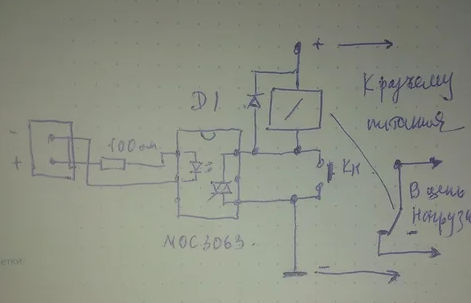 +
К разъему
питания
D1
-
100 ом.
+
Кн
В цепь
нагрузки
MOC3063.
-
етки